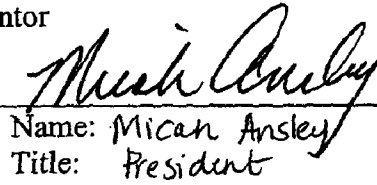 ntor
Micah Ansley
Name: Micah Ansley
Title: President